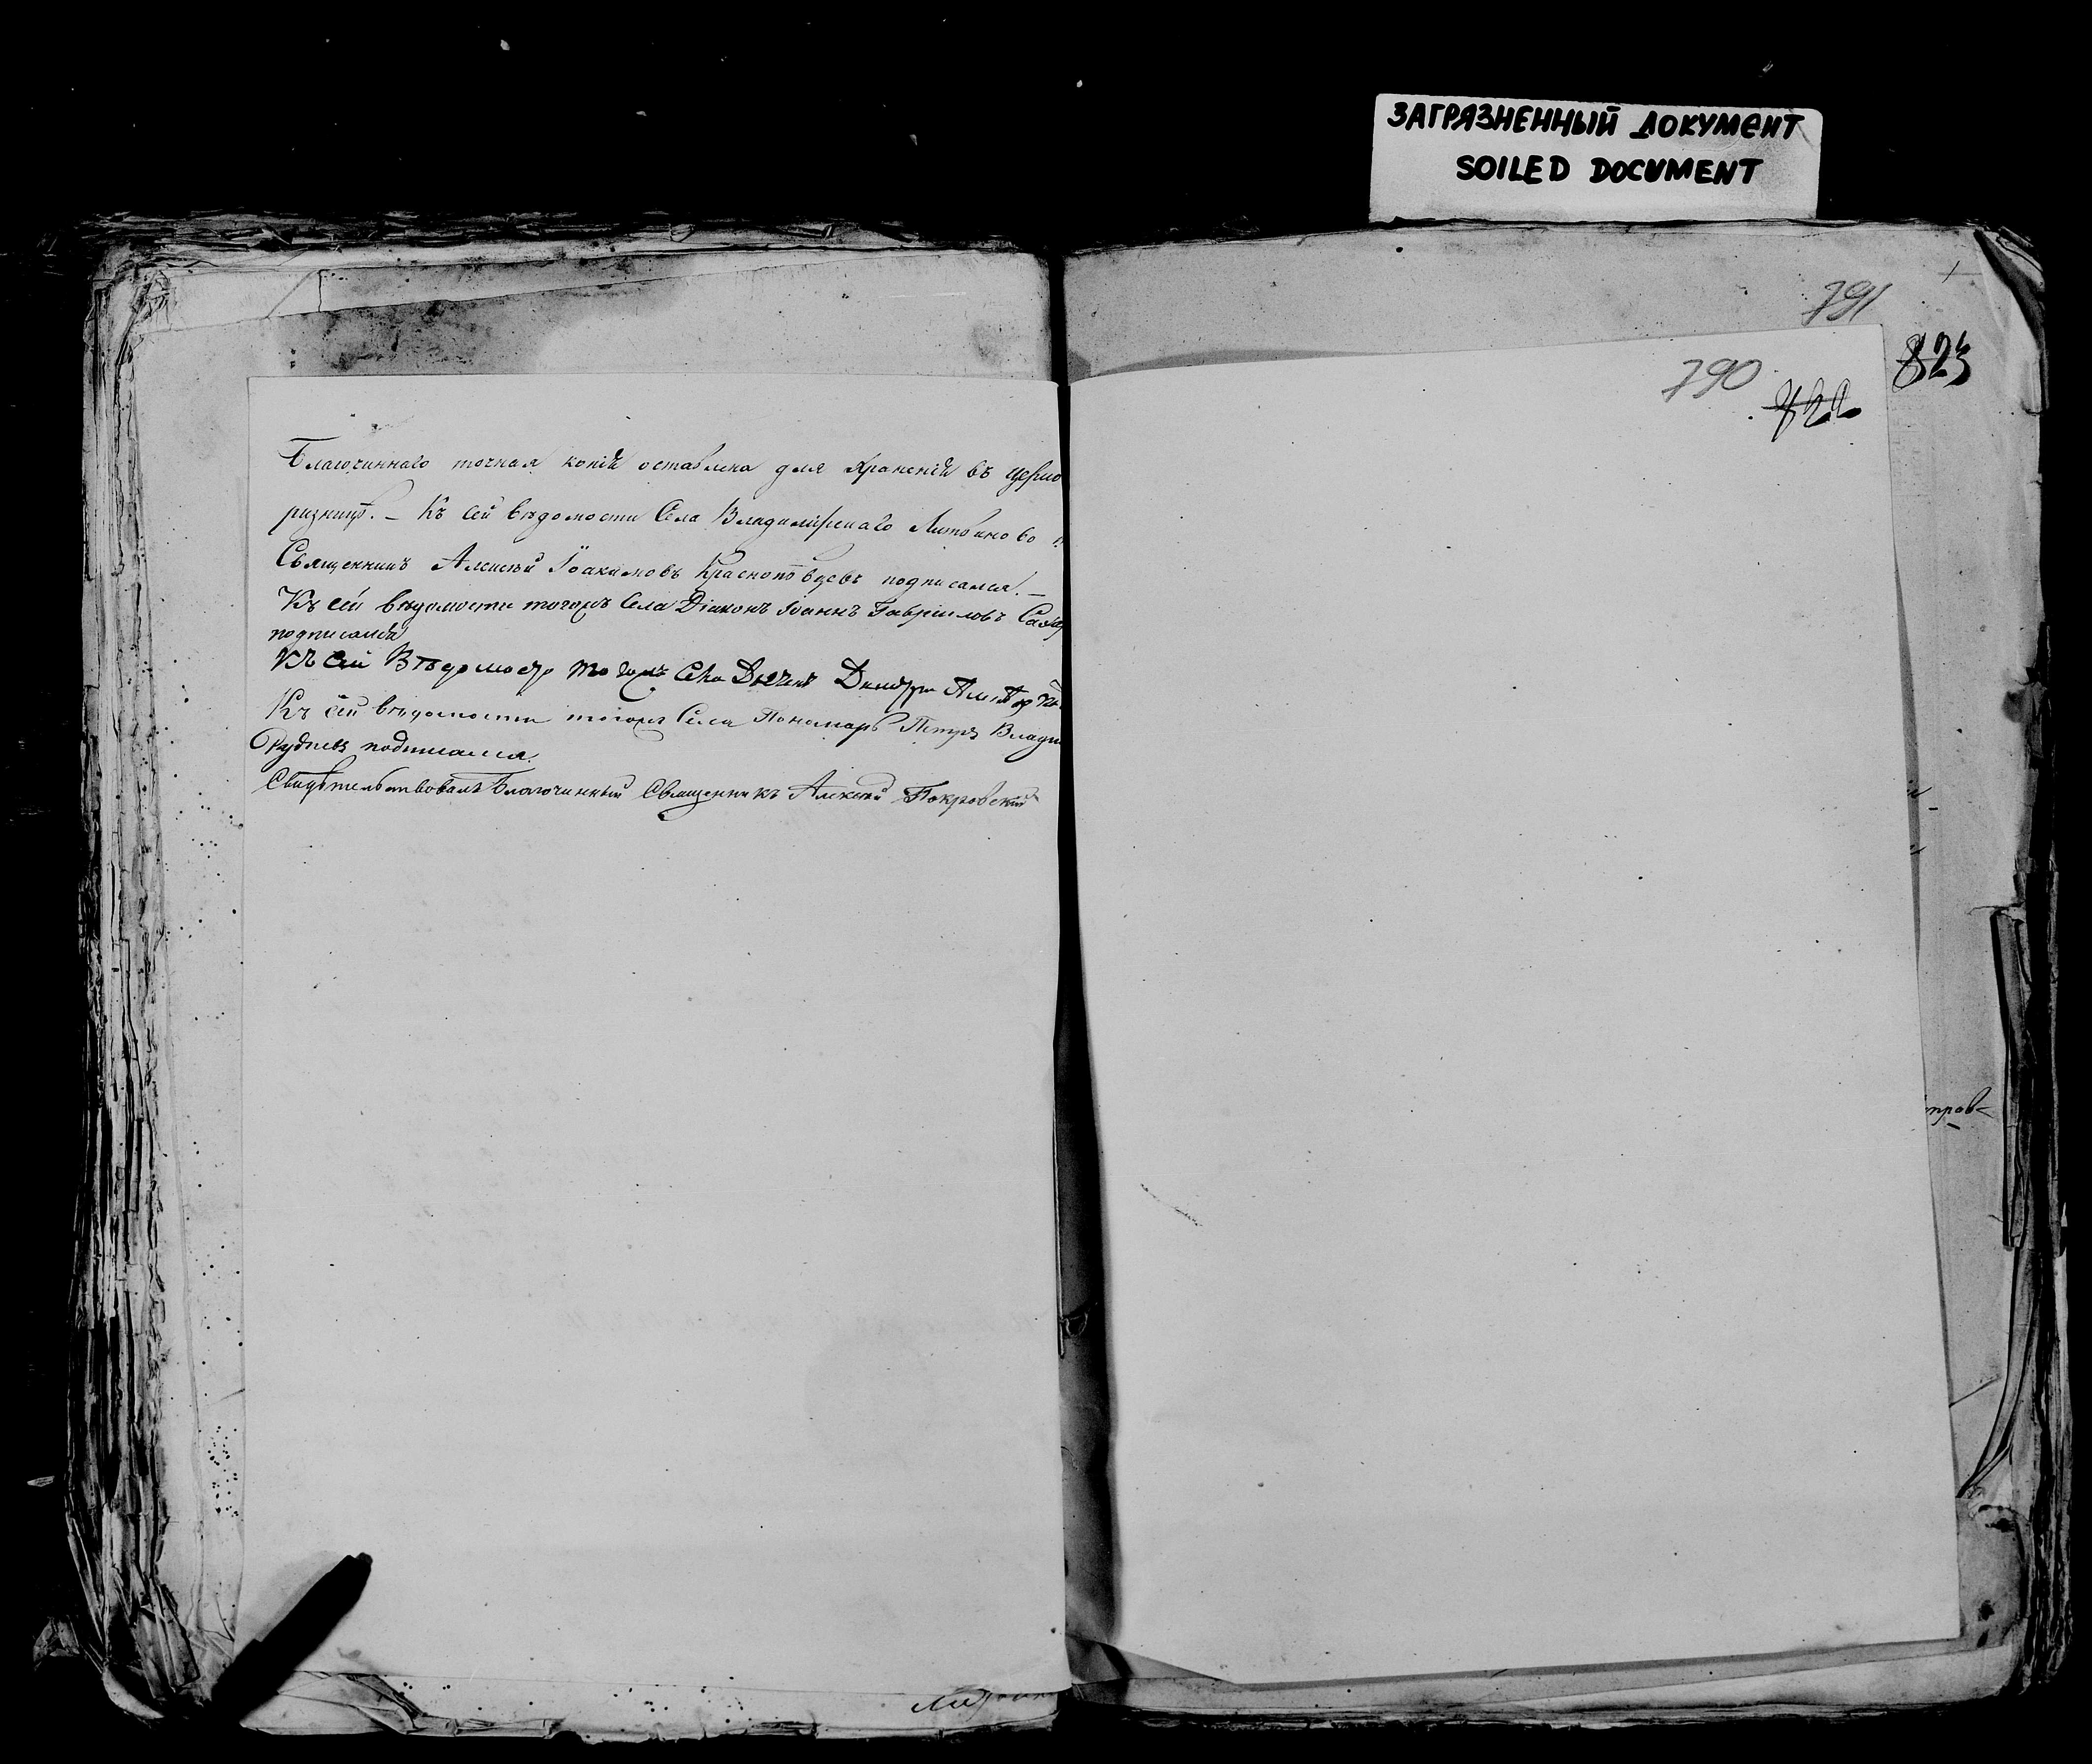 ЗАГРЯЗНЕННЫЙ ДОКУМЕНТ
SOILED DOCUMENT
791
823
790
822
Благочиннаго точная копія оставлена для храненія въ церко
ризницѣ. – Къ сей вѣдомости Села Владимірскаго Литвиново
Священникъ Алексѣй Іоакимовъ подписался. –
Къ сей вѣдомости тогожъ Села Діаконъ Іоаннъ Гавріиловъ
подписался
Къ сей Вѣдомостѣ тогожъ Села Дьячекъ
Къ сей вѣдомости тогожъ Села Пономарь Петръ Влади
Рудневъ подписался.
Свидѣтельствовалъ Благочинный Священникъ Алексѣй Покровскій